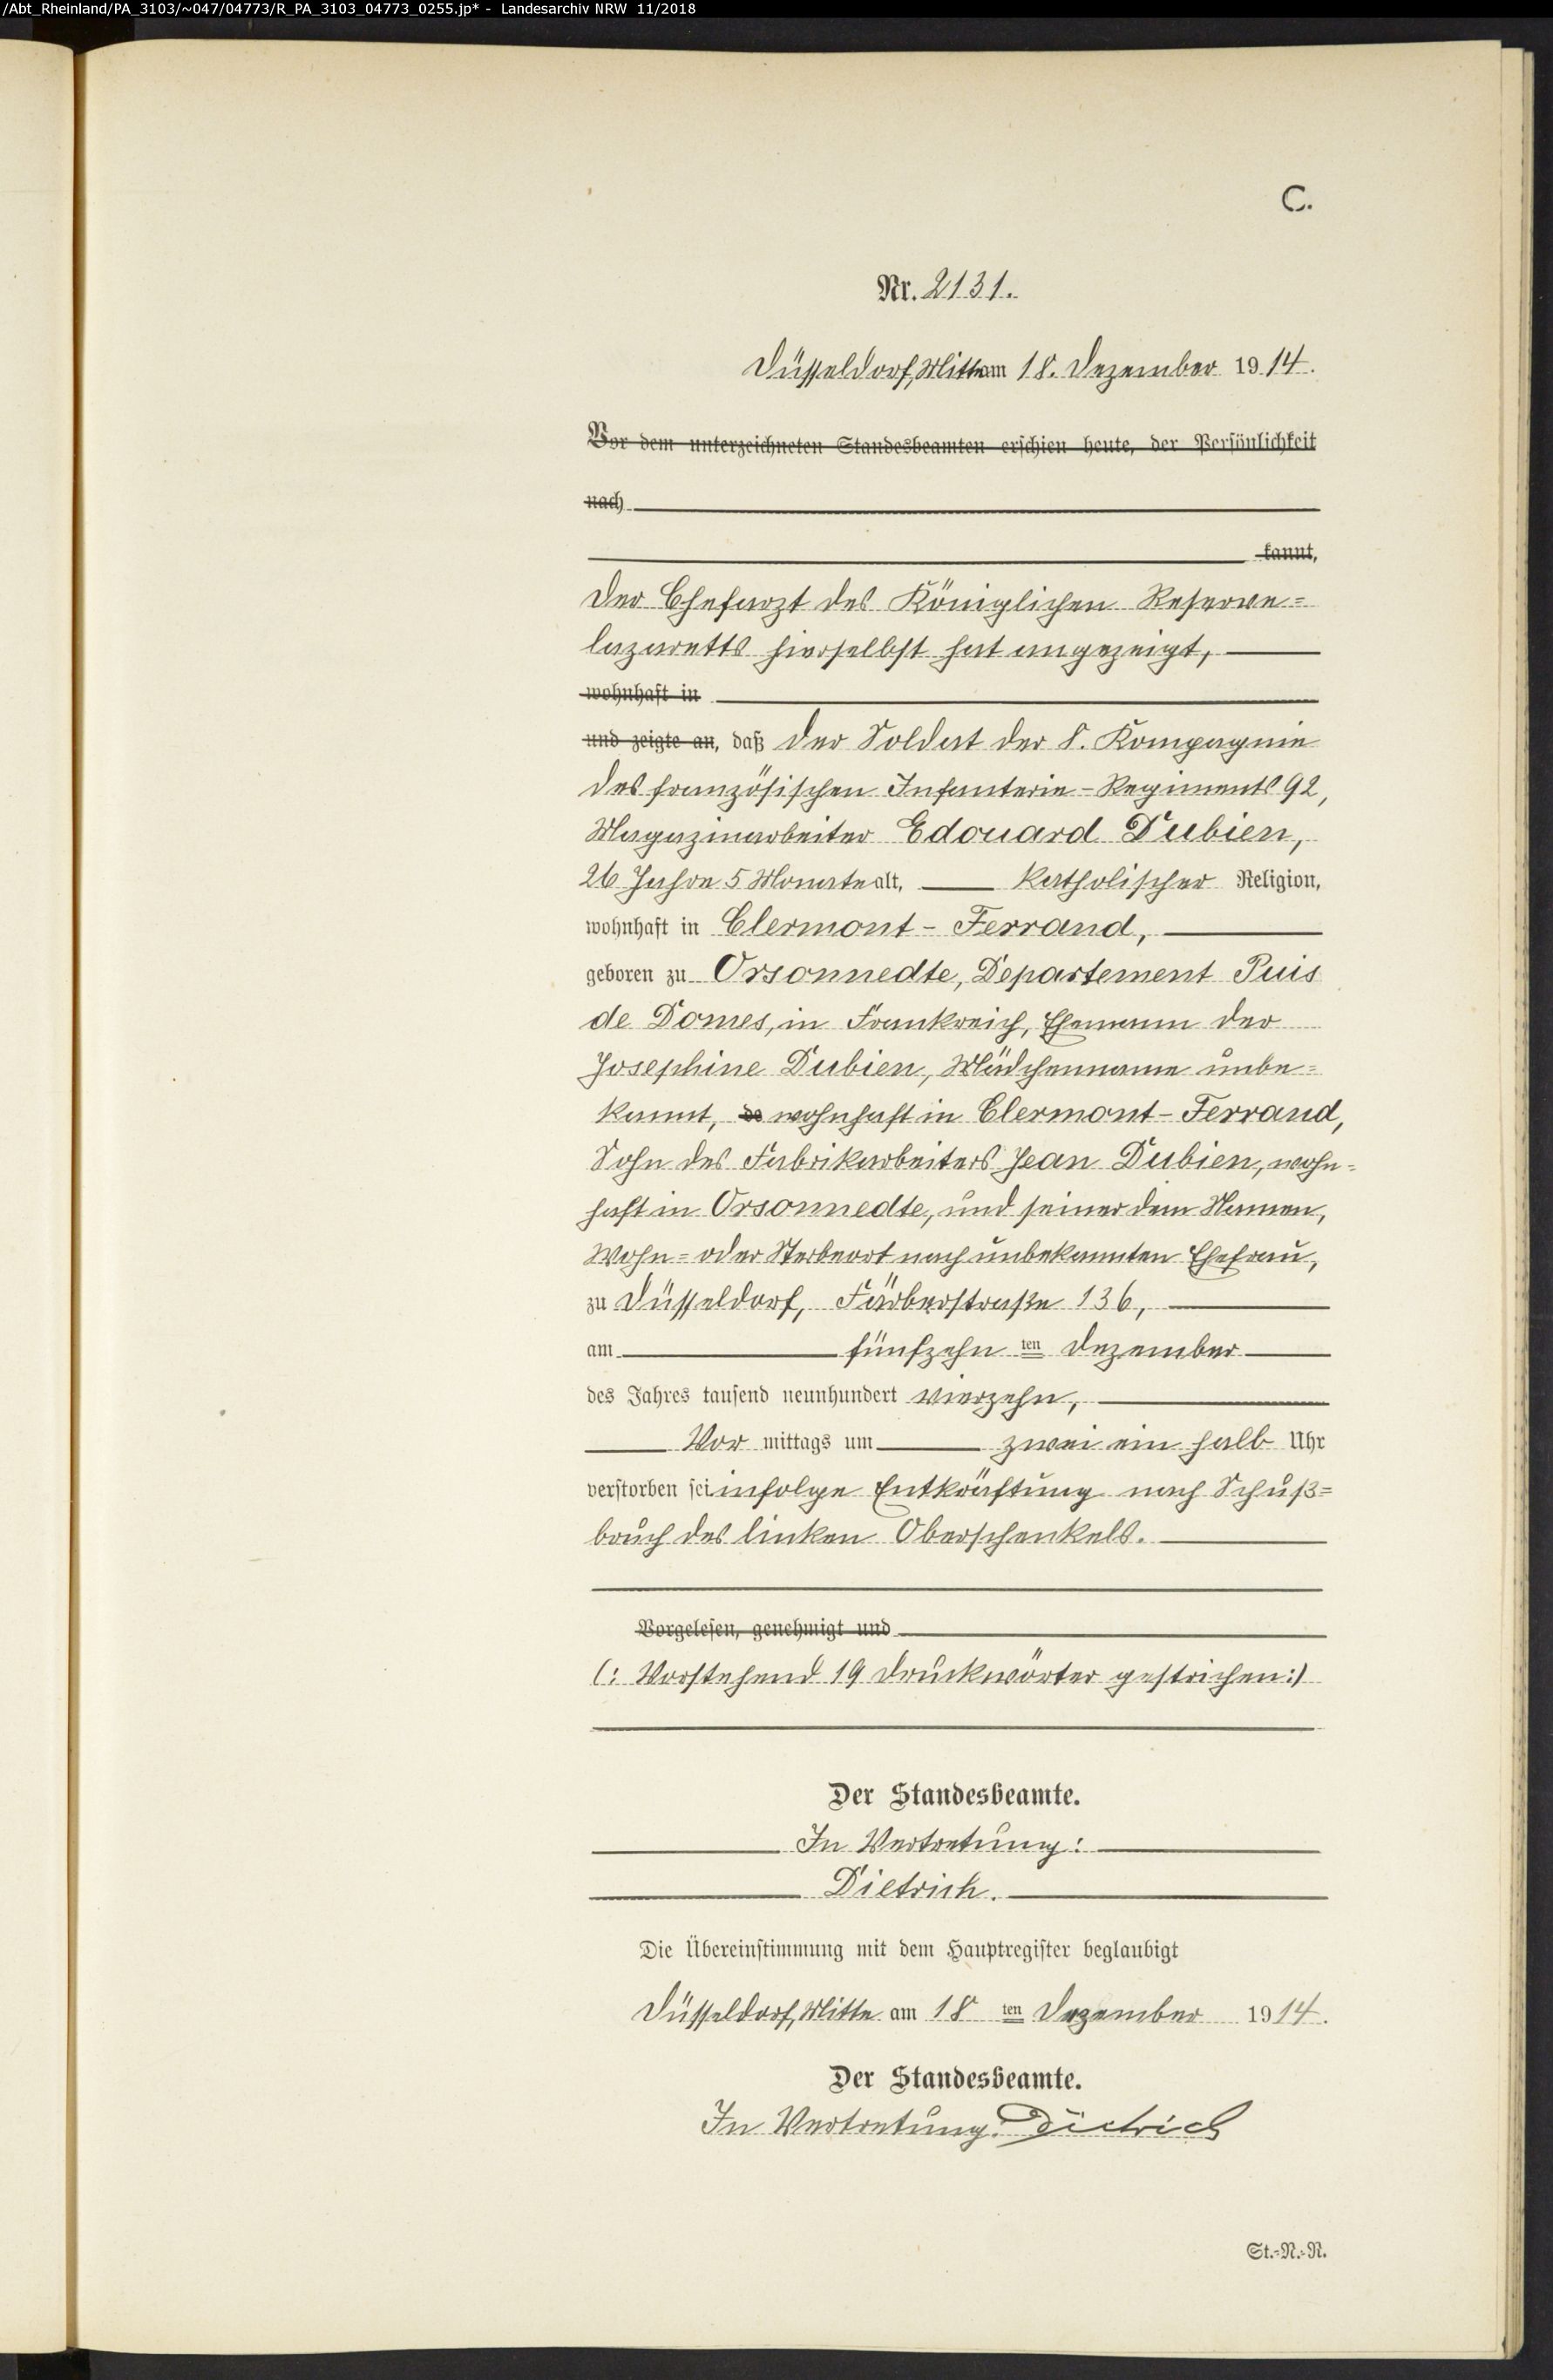 /Abt_Rheinland/PA_3103/~047/04773/R_PA_3103_04773_0255.jp* - Landesarchiv NRW 11/2018
C.
Nr. 2131.
Düsseldorf, Mitte am 18. Dezember 1914.
Vor dem unterzeichneten Standesbeamten erschien heute, der Persönlichkeit
nach
kannt,
Der Chefarzt des Königlichen Reserve=
lazaretts hierselbst hat angezeigt,
wohnhaft in
und zeigte an, daß der Soldat der 8. Kompagnie
des französischen Infanterie-Regiments 92,
Magazinarbeiter Edouard Dubien,
26 Jahre 5 Monate alt, katholischer Religion,
wohnhaft in Clermont-Ferrand,
geboren zu Orsonnedte, Departement Puis
de Domes, in Frankreich, Ehemann der
Josephine Dubien, Mädchenname unbe=
kannt, wohnhaft in Clermont-Ferrand,
Sohn des Fabrikarbeiters Jean Dubien, wohn=
haft in Orsonnedte, und seiner dem Namen,
Wohn= oder Sterbeort nach unbekannten Ehefrau,
zu Düsseldorf, Färberstraße 136,
am fünfzehn ten Dezember
des Jahres tausend neunhundert vierzehn,
Vor mittags um zwei ein halb Uhr
verstorben sei infolge Entkräftung nach Schuß=
bruch des linken Oberschenkels.
Vorgelesen, genehmigt und
(: Vorstehend 19 Druckwörter gestrichen :)
Der Standesbeamte.
In Vertretung:
Dietrich.
Die Übereinstimmung mit dem Hauptregister beglaubigt
Düsseldorf, Mitte am 18 ten Dezember 1914.
Der Standesbeamte.
In Vertretung: Dietrich
St.=N.=R.